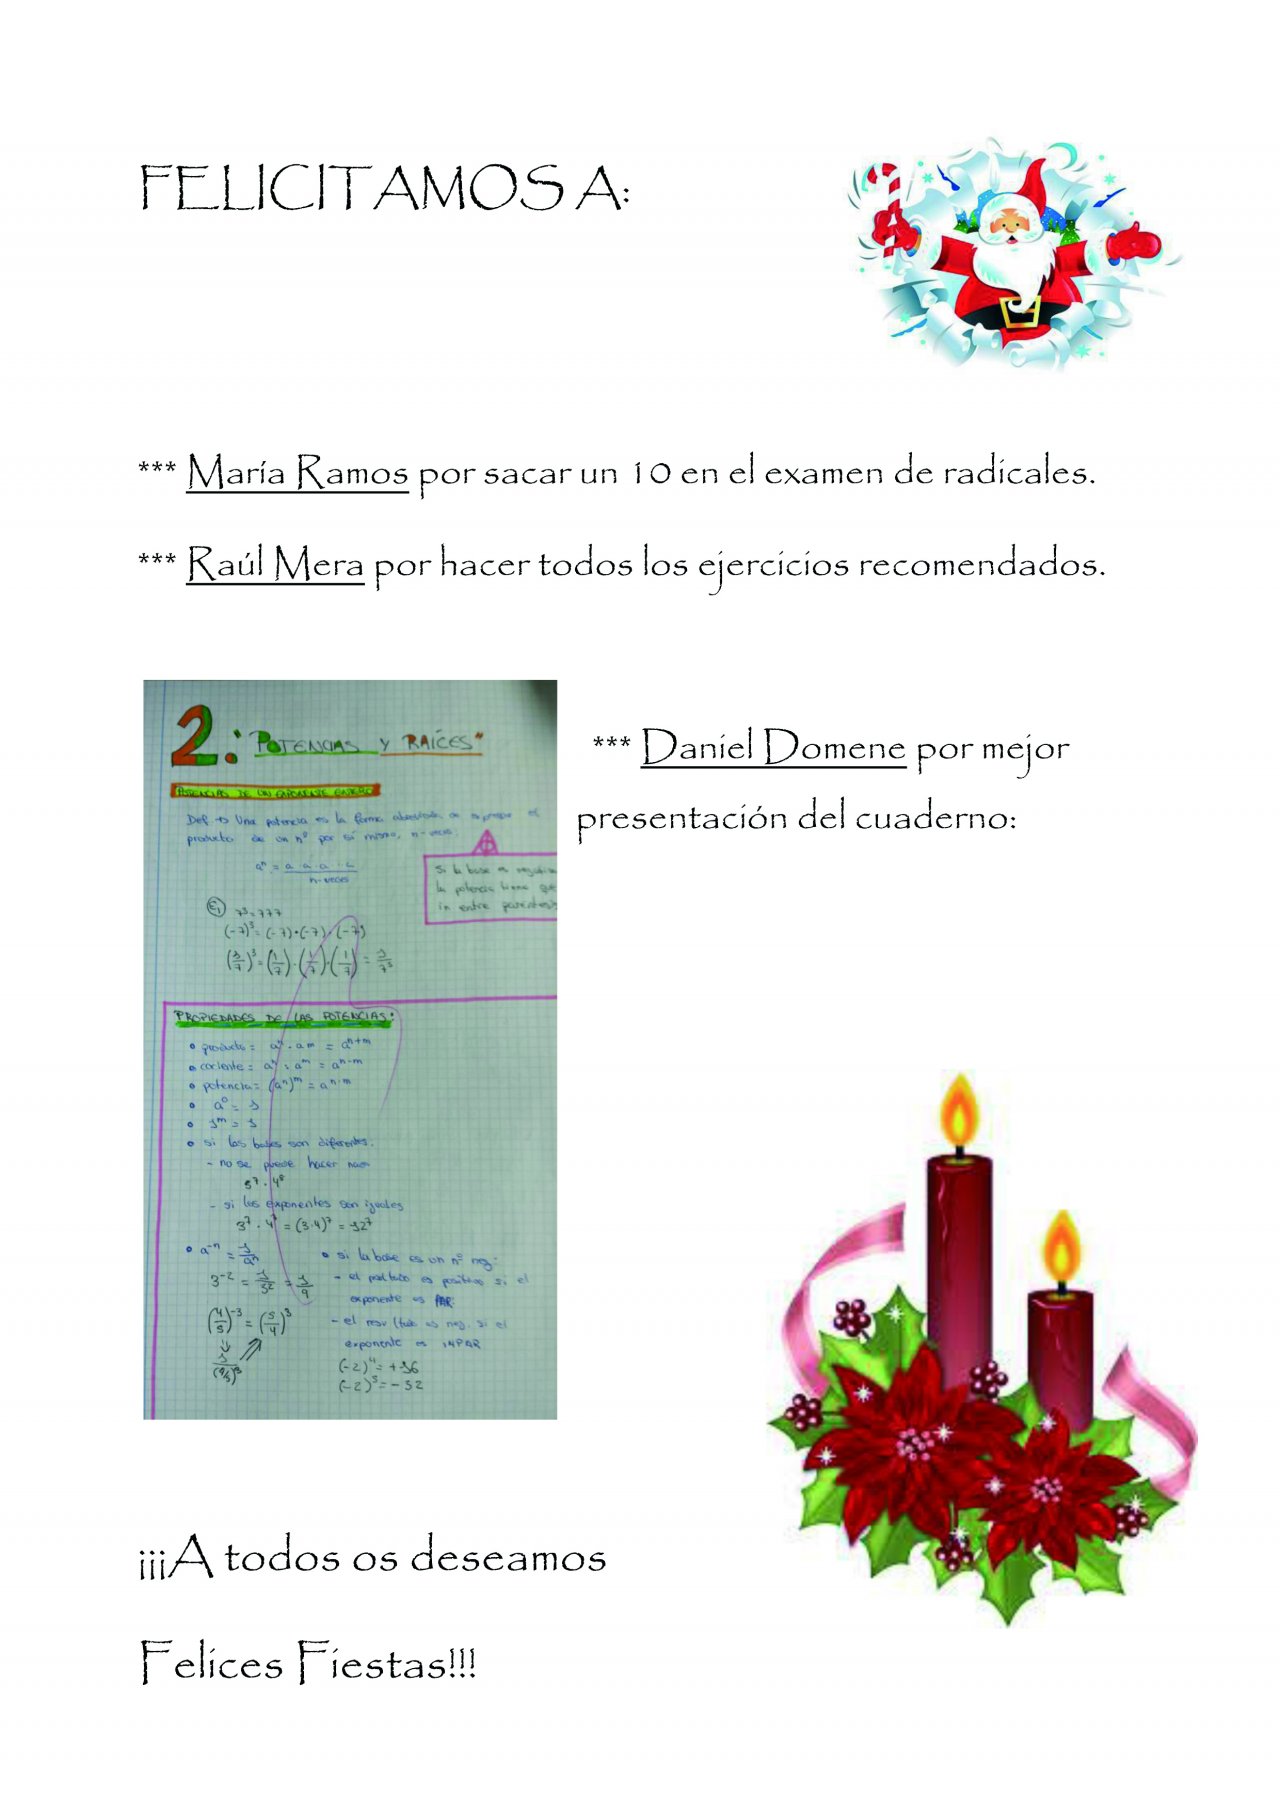 FELICITAMOS A:
*** María Ramos por sacar un 10 en el examen de radicales.
*** Raúl Mera por hacer todos los ejercicios recomendados.
*** Daniel Domene por mejor
presentación del cuaderno:
2. "POTENCIAS Y RAÍCES"
POTENCIAS DE UN EXPONENTE ENTERO
Def → Una potencia es la forma abreviada de expresar el
producto de un nº por sí mismo, n-veces.
aⁿ = a · a · a
n-veces
Si la base es negativa
la potencia tiene que
ir entre paréntesis
7³=777
(-7)³=(-7)·(-7)·(-7)
(1/7)³=(1/7)·(1/7)·(1/7)=1/7³
PROPIEDADES DE LAS POTENCIAS:
• producto = aⁿ · am = aⁿ⁺ᵐ
• cociente = aⁿ : aᵐ = aⁿ⁻ᵐ
• potencia = (aⁿ)ᵐ = aⁿ·ᵐ
• a⁰ = 1
• 1ᵐ = 1
• si las bases son diferentes.
- no se puede hacer nada
5⁷ · 4⁸
- si los exponentes son iguales
3⁷ · 4⁷ = (3·4)⁷ = 12⁷
• a⁻ⁿ = 1/aⁿ
3⁻² = 1/3² = 1/9
(4/5)⁻³ = (5/4)³
1/(4/5)³
• si la base es un nº neg:
- el es positivo si el
exponente es PAR.
- el resultado es neg. si el
exponente es IMPAR
(-2)⁴ = +16
(-2)⁵ = -32
¡¡¡A todos os deseamos
Felices Fiestas!!!